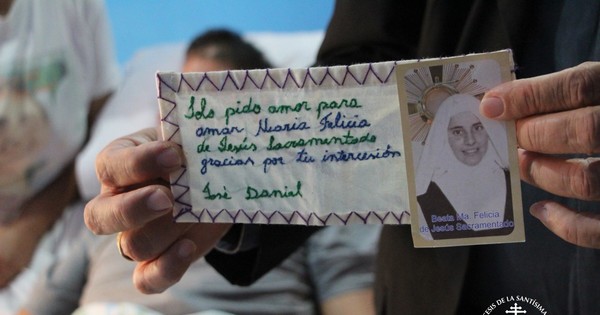 Solo pido amor para
amar María Felicia
de Jesús Sacramentado
gracias por tu intercesión
José Daniel
Beata Ma. Felicia
de Jesús Sacramentado
CESIS DE LA SANTÍSIMA